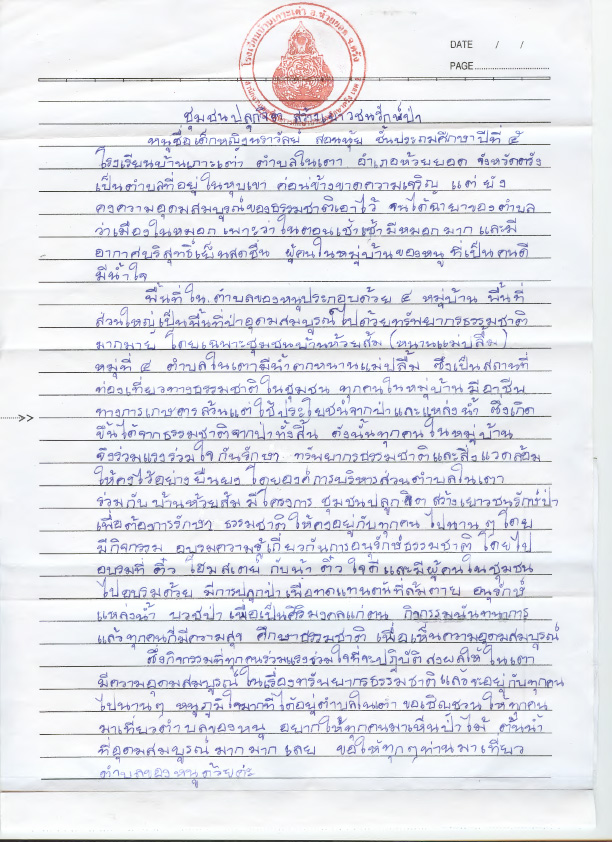 DATE / /
PAGE
โรงเรียนบ้านเกาะเต่า อ.ห้วยยอด จ.ตรัง
ชุมชนปลูกจิต สร้างเยาวชนรักษ์ป่า
หนูชื่อเด็กหญิงนราวัลย์ สอนหุ้ย ชั้นประถมศึกษาปีที่ ๕
โรงเรียนบ้านเกาะเต่า ตำบลในเตา อำเภอห้วยยอด จังหวัดตรัง
เป็นตำบลที่อยู่ในหุบเขา ค่อนข้างขาดความเจริญ แต่ยัง
คงความอุดมสมบูรณ์ของธรรมชาติเอาไว้ จนได้ฉายาของตำบล
ว่าเมืองในหมอก เพราะว่าในตอนเช้าเช้ามีหมอกมาก และมี
อากาศบริสุทธิ์เย็นสดชื่น ผู้คนในหมู่บ้านของหนู ที่เป็นคนดี
มีน้ำใจ
พื้นที่ในตำบลของหนูประกอบด้วย ๕ หมู่บ้าน พื้นที่
ส่วนใหญ่เป็นพื้นที่ป่าอุดมสมบูรณ์ไปด้วยทรัพยากรธรรมชาติ
มากมาย โดยเฉพาะชุมชนบ้านห้วยส้ม (หนานแม่ปลื้ม)
หมู่ที่ ๔ ตำบลในเตามีน้ำตกหนานแม่ปลื้ม ซึ่งเป็นสถานที่
ท่องเที่ยวทางธรรมชาติในชุมชน ทุกคนในหมู่บ้านมีอาชีพ
ทางการเกษตรล้วนแต่ใช้ประโยชน์จากป่าและแหล่งน้ำ ซึ่งเกิด
ขึ้นได้จากธรรมชาติจากป่าทั้งสิ้น ดังนั้นทุกคนในหมู่บ้าน
จึงร่วมแรงร่วมใจกันรักษา ทรัพยากรธรรมชาติและสิ่งแวดล้อม
ให้คงไว้อย่างยืนยง โดยองค์การบริหารส่วนตำบลในเตา
ร่วมกับบ้านห้วยส้มมีโครงการ ชุมชนปลูกจิต สร้างเยาวชนรักษ์ป่า
เพื่อต้องการรักษา ธรรมชาติให้คงอยู่กับทุกคน ไปนานๆ โดย
มีกิจกรรม อบรมความรู้เกี่ยวกับการอนุรักษ์ธรรมชาติ โดยไป
อบรมที่ ติ๋ว โฮมสเตย์ กับน้า ติ๋ว ใจดี และมีผู้คนในชุมชน
ไปอบรมด้วย มีการปลูกป่าเพื่อทดแทนต้นที่ล้มตาย อนุรักษ์
แหล่งน้ำ บวชป่า เพื่อเป็นศิริมงคลแก่ตน กิจกรรมนันทนาการ
แล้วทุกคนก็มีความสุข ศึกษาธรรมชาติ เพื่อเห็นความอุดมสมบูรณ์
ซึ่งกิจกรรมที่ทุกคนร่วมแรงร่วมใจที่จะปฏิบัติส่งผลให้ในเตา
มีความอุดมสมบูรณ์ในเรื่องทรัพยากรธรรมชาติ แล้วจะอยู่กับทุกคน
ไปนานๆ หนูภูมิใจมากที่ได้อยู่ตำบลในเตา ขอเชิญชวนให้ทุกคน
มาเที่ยวตำบลของหนู อยากให้ทุกคนมาเห็นป่าไม้ ต้นน้ำ
ที่อุดมสมบูรณ์มากมาก เลย ขอให้ทุกๆท่านมาเที่ยว
ตำบลของหนูด้วยค่ะ